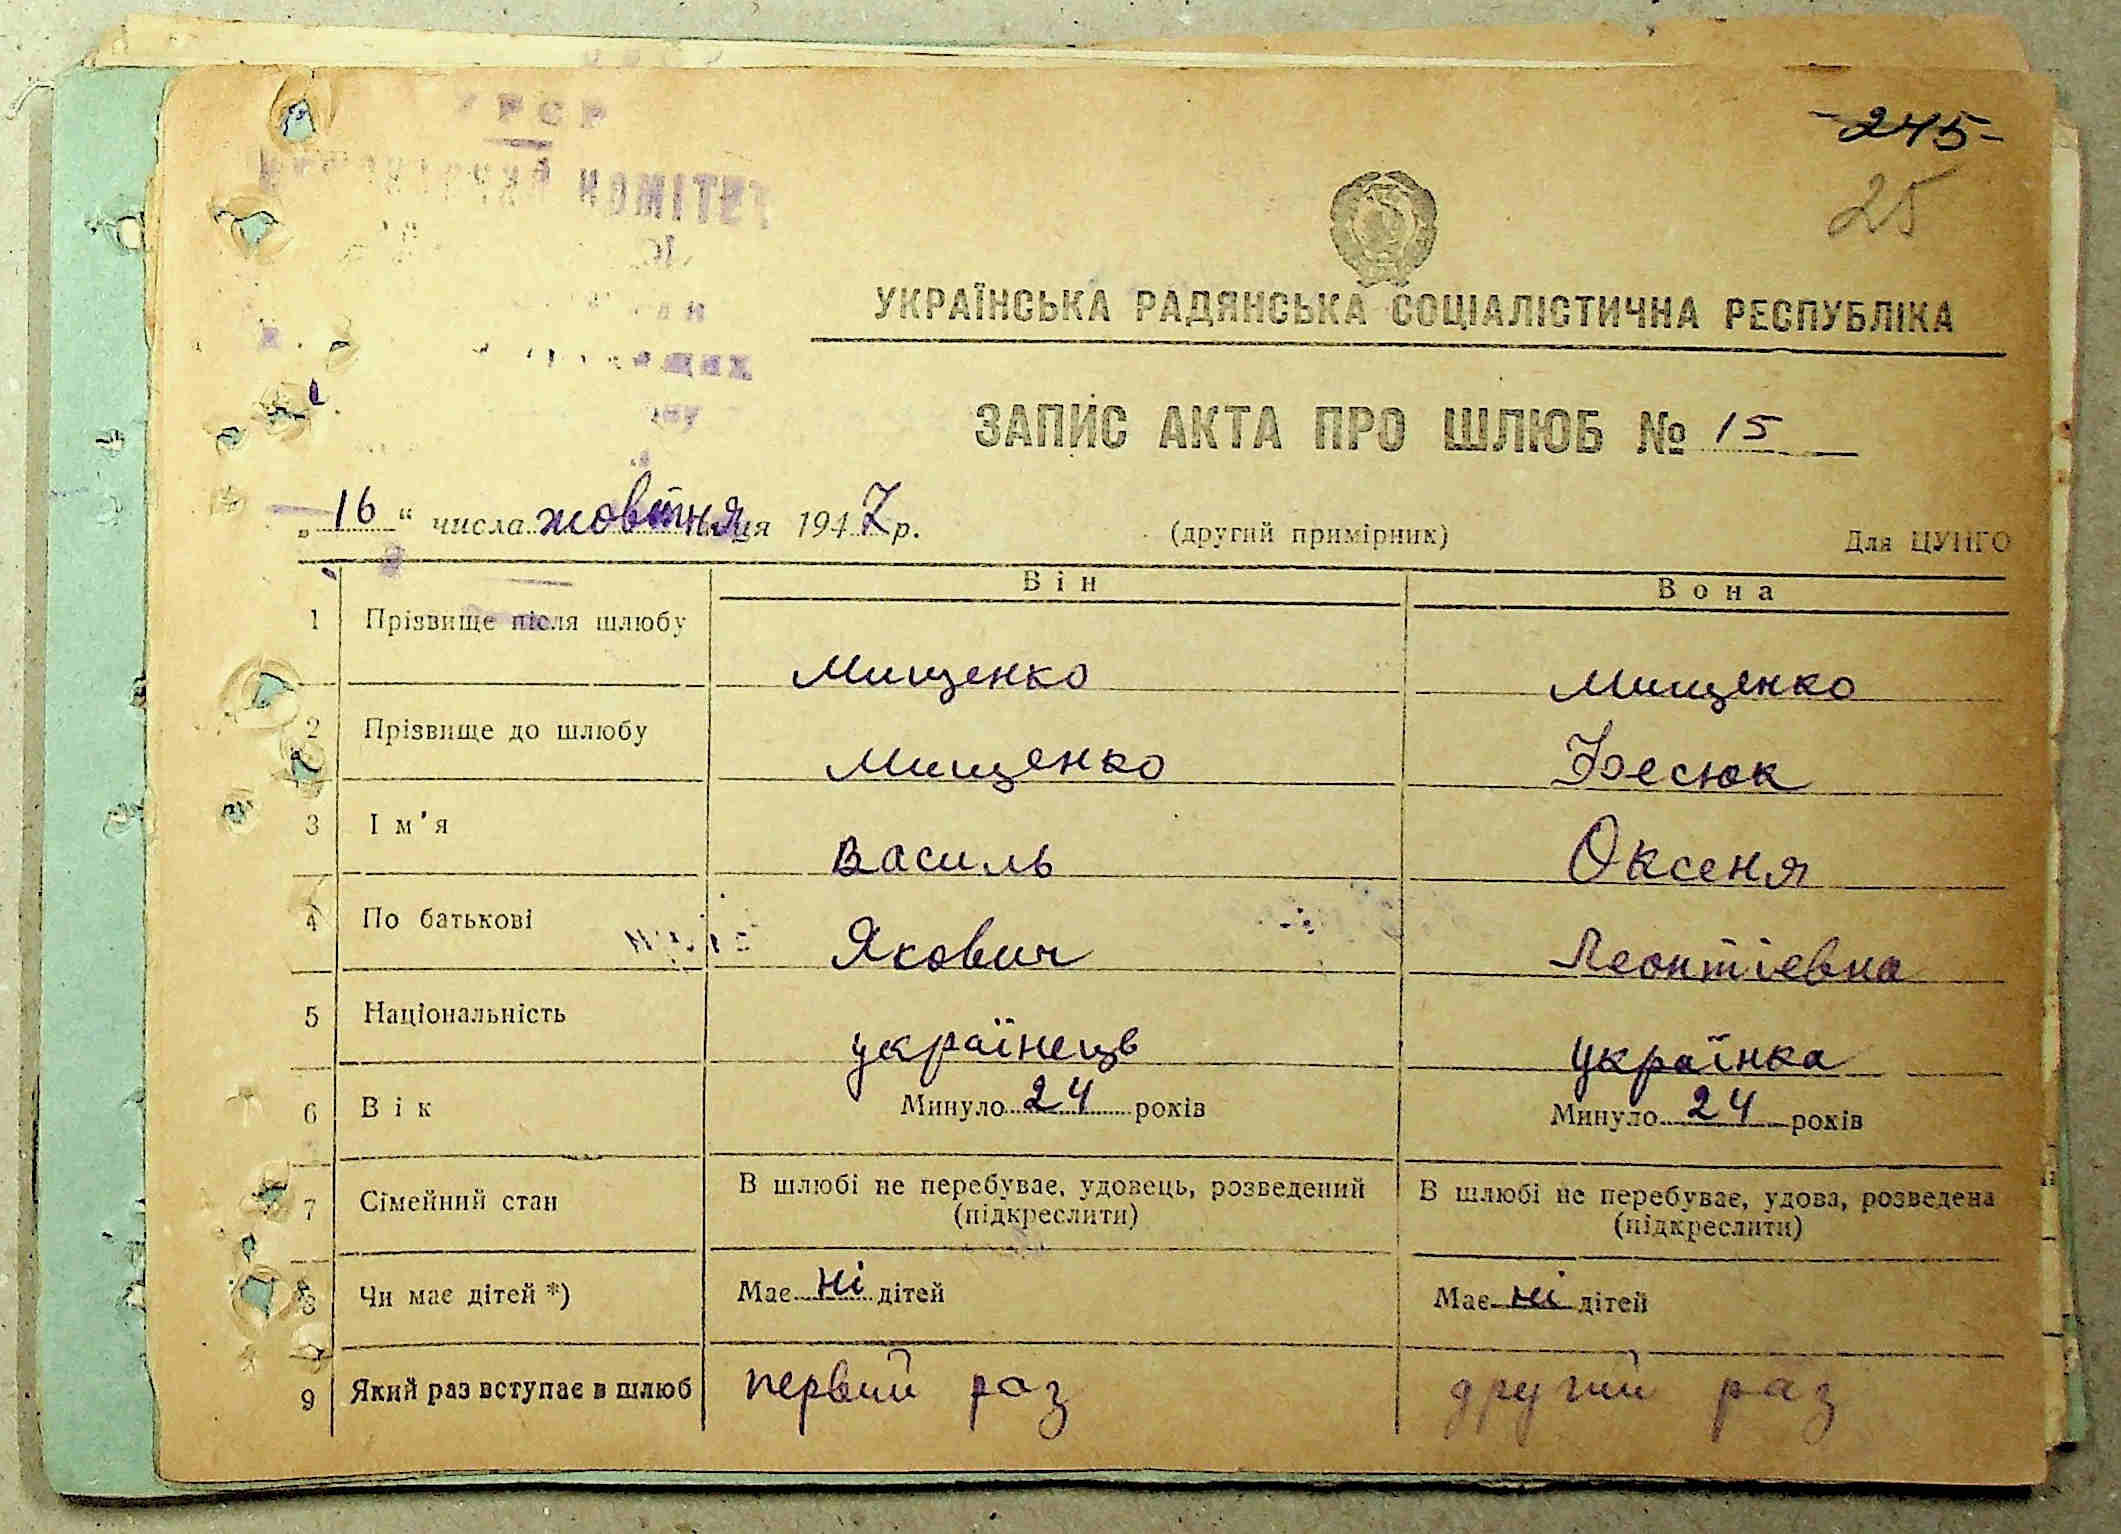 УРСР
-245-
комітет
25
УКРАЇНСЬКА РАДЯНСЬКА СОЦІАЛІСТИЧНА РЕСПУБЛІКА
ЗАПИС АКТА ПРО ШЛЮБ № 15
„16“ числа жовтня місяця 1947 р. (другий примірник) Для ЦУНГО
Він Вона
1 Прізвище після шлюбу Мищенко Мищенко
2 Прізвище до шлюбу Мищенко Фесюк
3 Ім'я Василь Оксеня
4 По батькові Якович Леонтіевна
5 Національність українець українка
6 Вік Минуло 24 років Минуло 24 років
7 Сімейний стан В шлюбі не перебуває, удовець, розведений В шлюбі не перебуває, удова, розведена
(підкреслити) (підкреслити)
8 Чи має дітей *) Має ні дітей Має ні дітей
9 Який раз вступає в шлюб первий раз другий раз